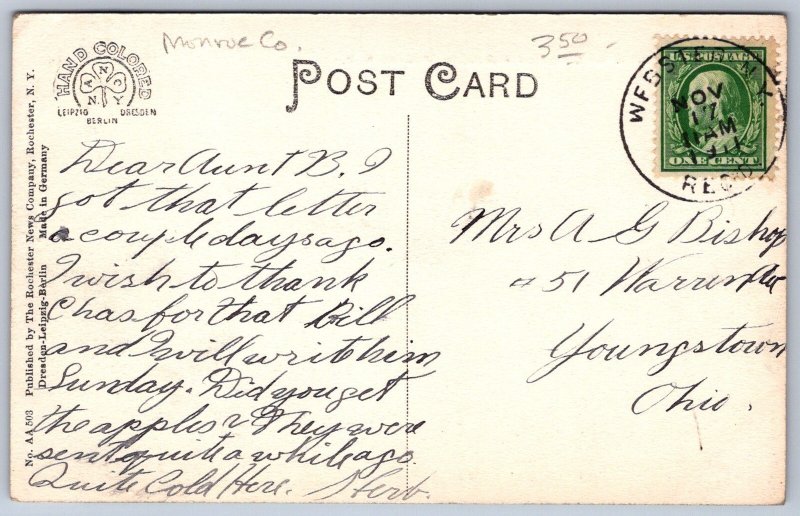 Monroe Co.
3.50
HAND COLORED
A N C
N Y
LEIPZIG DRESDEN
BERLIN
POST CARD
U.S. POSTAGE
ONE CENT
NOV
17
11 AM
REC'D
No. AA 503 Published by The Rochester News Company, Rochester, N. Y.
Dresden-Leipzig-Berlin Made in Germany
Dear Aunt B. I
got that letter
a couple days ago.
I wish to thank
Chas for that Bill
and I will write him
Sunday. Did you get
the apples? They were
sent quite a while ago
Quite Cold Here. Herb.
Mrs A G Bishop
#51 Warren Av
Youngstown
Ohio.